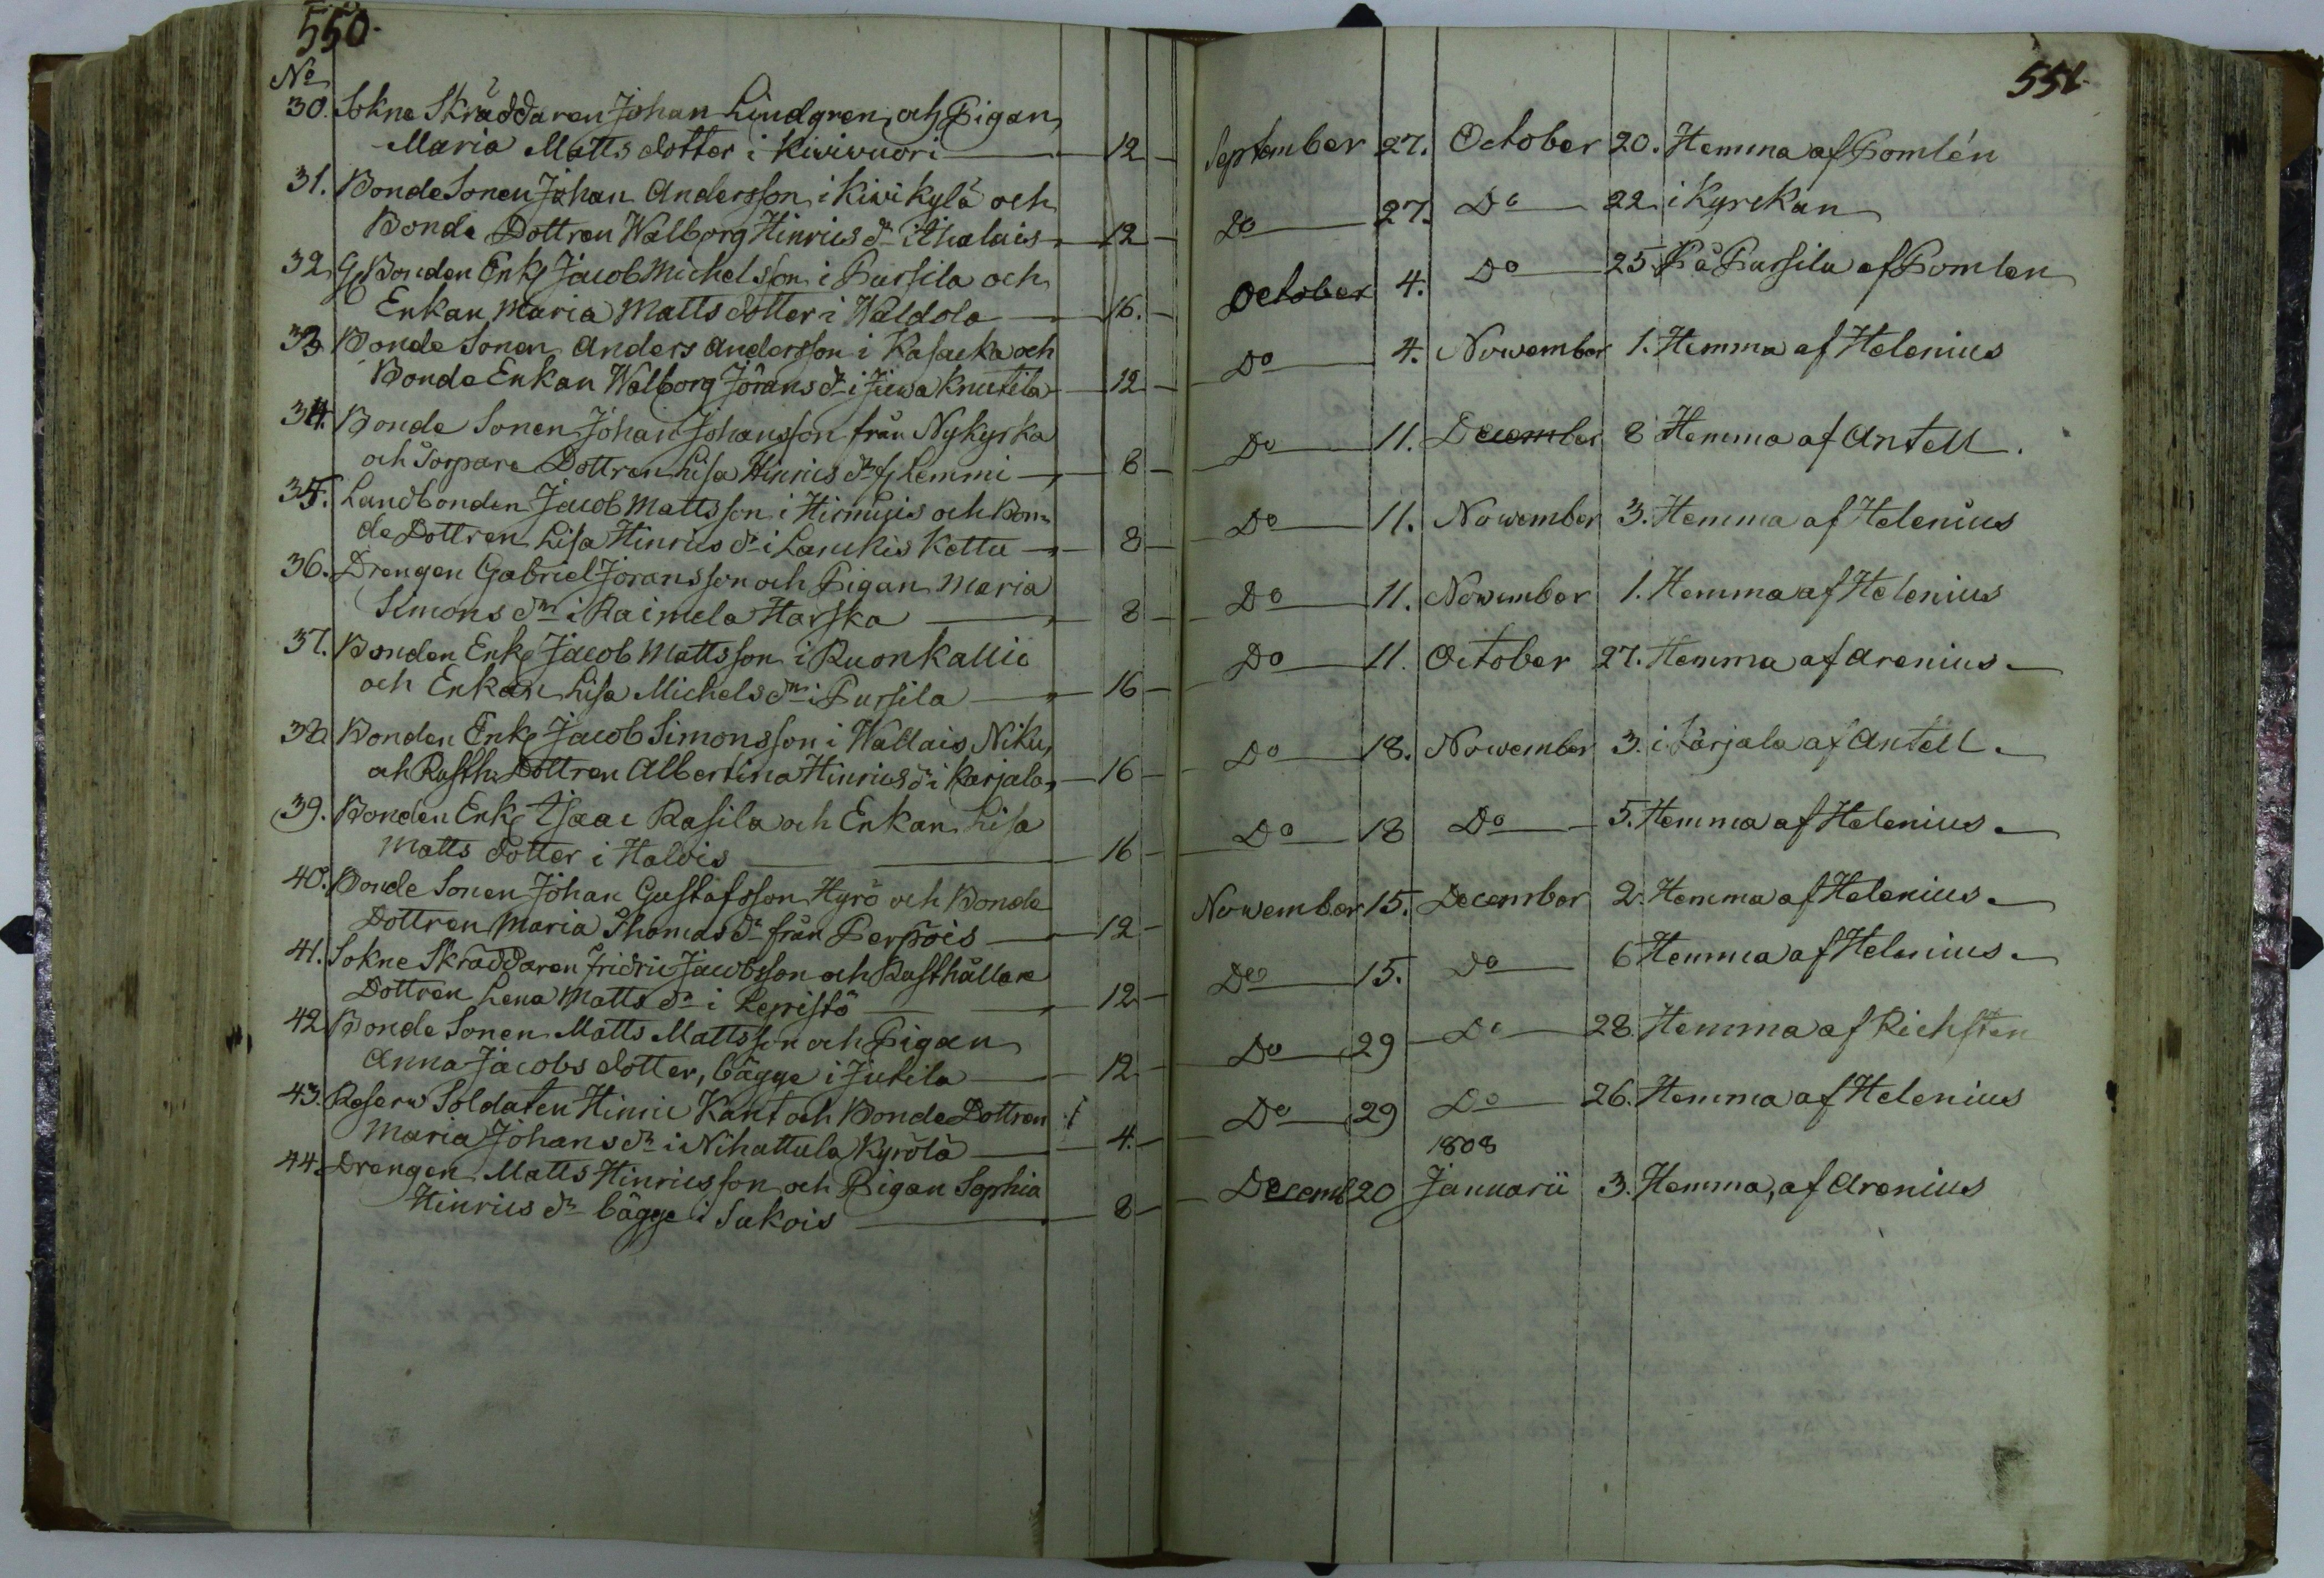 550.
No
30. Sokne Skräddaren Johan Lindgren, och Pigan
Maria Matts dotter i Kiwiwuori 12
31. Bonde Sonen Johan Andersson i Kiwikylä och
Bonde Dottren Walborg Hinrics dr i Ihalais 12
32. Gl Bonden Enkl Jacob Michelsson i Pursila och
Enkan Maria Matts dotter i Waldola 16.
33 Bonde Sonen Anders Andersson i Kasacka och
Bonde Enkan Walborg Jörans dr i Juwa Knutila 12
34. Bonde Sonen Johan Johansson från Nykyrka
och Torpare Dottren Lisa Hinrics dr fr Lemmi 8
35. Landbonden Jacob Mattsson i Hirnuis och Bon=
de Dottren Lisa Hinrics dr i Laukis Kottu 8
36. Drengen Gabriel Joransson och Pigan Maria
Simons dr i Raimela Harska 8
37. Bonden Enkl Jacob Mattsson i Ruonkallio
och Enkan Lisa Michels dr i Pursila 16
38 Bonden Enkl Jacob Simonsson i Wallais Niku,
och Rusth: Dottren Albertina Hinrics dr i Karjala 16
39. Bonden Enkl Isaac Rasila och Enkan Lisa
Matts dotter i Halois 16
40. Bonde Sonen Johan Gustafsson Hyrö och Bonde
Dottren Maria Thomas dr från Perpöis 12
41. Sokne Skräddaren Fridric Jacobsson och Rusthållare
Dottren Lena Matts dr i Lepistö 12
42 Bonde Sonen Matts Mattsson och Pigan
Anna Jacobs dotter, bägge i Jutila 12
43. Reserw Soldaten Hinric Kant och Bonde Dottren
Maria Johans dr i Nihattula Kyrölä 4.
44. Drengen Matts Hinricsson och Pigan Sophia
Hinrics dr bägge i Sukois 8
551.
September 27. October 20. Hemma af Pomlén
Do 27. Do 22 i Kyrckan
October 4. Do 25. På Pursila af Pomlen
Do 4. Nowember 1. Hemma af Helenius
Do 11. December 8 Hemma af Antell.
Do 11. Nowember 3. Hemma af Helenius
Do 11. Nowember 1. Hemma af Helenius
Do 11. October 27. Hemma af Arenius
Do 18. Nowember 3. i Karjala af Antell
Do 18 Do 5. Hemma af Helenius
Nowember 15. December 2. Hemma af Helenius
Do 15. Do 6 Hemma af Helenius
Do 29 Do 28. Hemma af Richsten
Do 29 Do 26. Hemma af Helenius
1808
Decemb 20 Januarii 3. Hemma, af Arenius